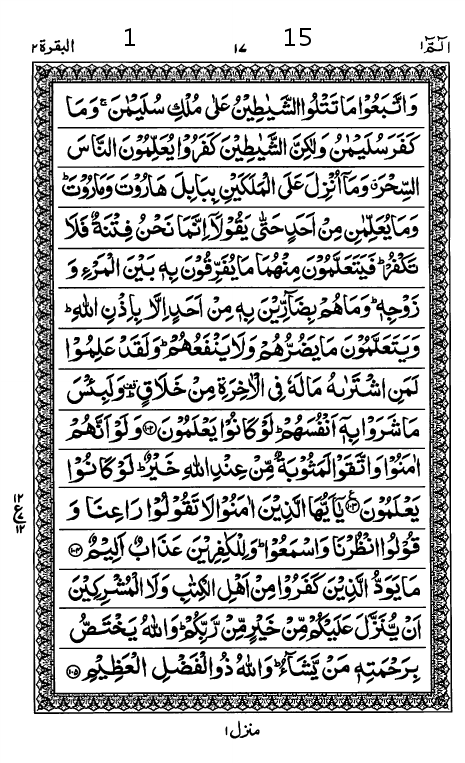 الٓمّٓ ١ 15 ١٧ 1 البقرة ٢
وَاتَّبَعُوْا مَا تَتْلُوا الشَّيٰطِيْنُ عَلٰى مُلْكِ سُلَيْمٰنَ ۚ وَمَا
كَفَرَ سُلَيْمٰنُ وَلٰكِنَّ الشَّيٰطِيْنَ كَفَرُوْا يُعَلِّمُوْنَ النَّاسَ
السِّحْرَ ۗ وَمَآ اُنْزِلَ عَلَى الْمَلَكَيْنِ بِبَابِلَ هَارُوْتَ وَمَارُوْتَ ؕ
وَمَا يُعَلِّمٰنِ مِنْ اَحَدٍ حَتّٰى يَقُوْلَاۤ اِنَّمَا نَحْنُ فِتْنَةٌ فَلَا
تَكْفُرْ ؕ فَيَتَعَلَّمُوْنَ مِنْهُمَا مَا يُفَرِّقُوْنَ بِهٖ بَيْنَ الْمَرْءِ وَ
زَوْجِهٖ ؕ وَمَا هُمْ بِضَآرِّيْنَ بِهٖ مِنْ اَحَدٍ اِلَّا بِاِذْنِ اللّٰهِ ؕ
وَيَتَعَلَّمُوْنَ مَا يَضُرُّهُمْ وَلَا يَنْفَعُهُمْ ؕ وَلَقَدْ عَلِمُوْا
لَمَنِ اشْتَرٰىهُ مَا لَهٗ فِى الْاٰخِرَةِ مِنْ خَلَاقٍ ؕ وَلَبِئْسَ
مَا شَرَوْا بِهٖٓ اَنْفُسَهُمْ ؕ لَوْ كَانُوْا يَعْلَمُوْنَ ﴿١٠٢﴾ وَلَوْ اَنَّهُمْ
اٰمَنُوْا وَاتَّقَوْا لَمَثُوْبَةٌ مِّنْ عِنْدِ اللّٰهِ خَيْرٌ ؕ لَوْ كَانُوْا
يَعْلَمُوْنَ ﴿١٠٣﴾ يٰٓاَيُّهَا الَّذِيْنَ اٰمَنُوْا لَا تَقُوْلُوْا رَاعِنَا وَ
قُوْلُوا انْظُرْنَا وَاسْمَعُوْا ؕ وَلِلْكٰفِرِيْنَ عَذَابٌ اَلِيْمٌ ﴿١٠٤﴾
مَا يَوَدُّ الَّذِيْنَ كَفَرُوْا مِنْ اَهْلِ الْكِتٰبِ وَلَا الْمُشْرِكِيْنَ
اَنْ يُّنَزَّلَ عَلَيْكُمْ مِّنْ خَيْرٍ مِّنْ رَّبِّكُمْ ؕ وَاللّٰهُ يَخْتَصُّ
بِرَحْمَتِهٖ مَنْ يَّشَآءُ ؕ وَاللّٰهُ ذُو الْفَضْلِ الْعَظِيْمِ ﴿١٠٥﴾
١٢
ع
١٢
منزل ١